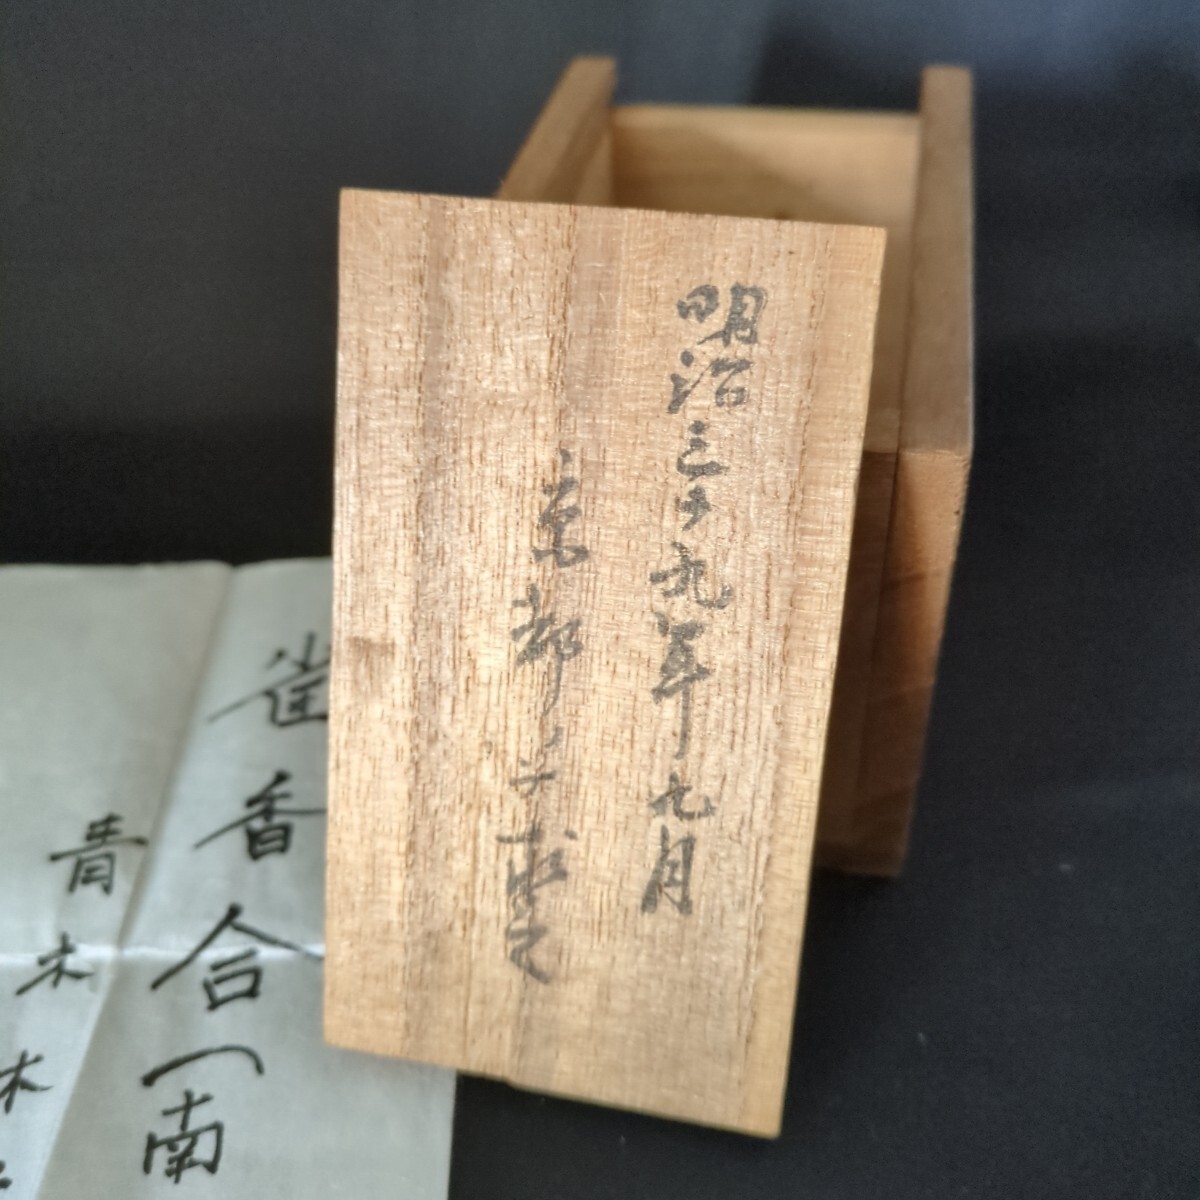 明治三十九年九月
京都ニ於テ求之
雀香合(南
青木木